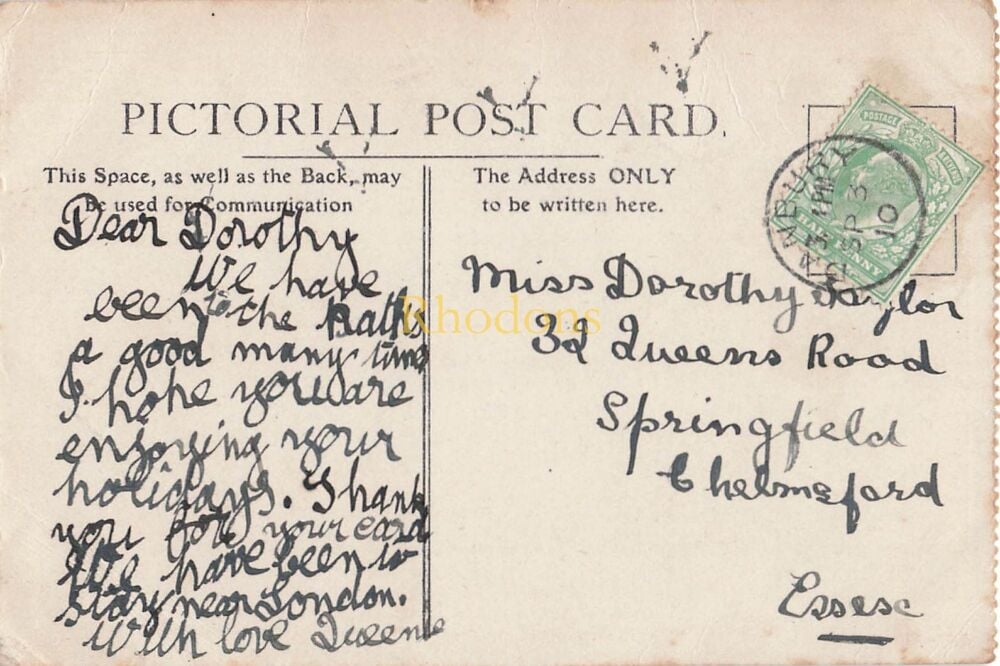 PICTORIAL POST CARD.
This Space, as well as the Back, may
be used for Communication
The Address ONLY
to be written here.
Dear Dorothy
We have
been to the Baths
a good many times
I hope you are
enjoying your
holidays. Thank
you for your card
We have been to
stay near London.
With love Queenie
Miss Dorothy Taylor
32 Queens Road
Springfield
Chelmsford
Essex
POSTAGE
HALFPENNY
BANBURY
PM
SP 3
10
Rhodons